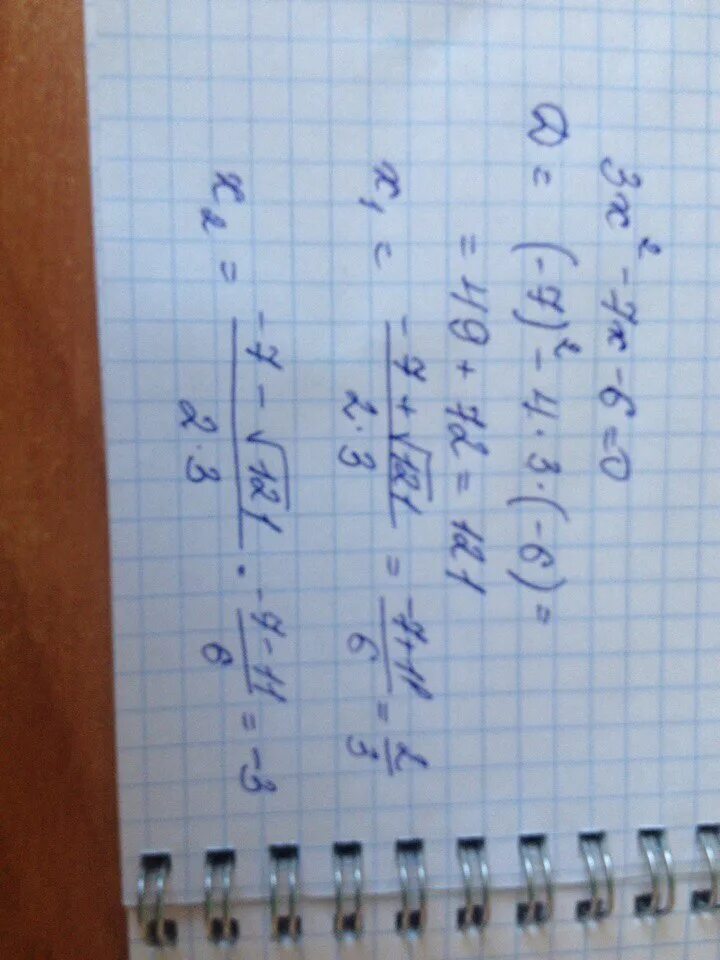 3x² - 7x - 6 = 0
D = (-7)² - 4 · 3 · (-6) =
= 49 + 72 = 121
x₁ = (-7 + √121)/(2 · 3) = (-7 + 11)/6 = 2/3
x₂ = (-7 - √121)/(2 · 3) · (-7 - 11)/6 = -3